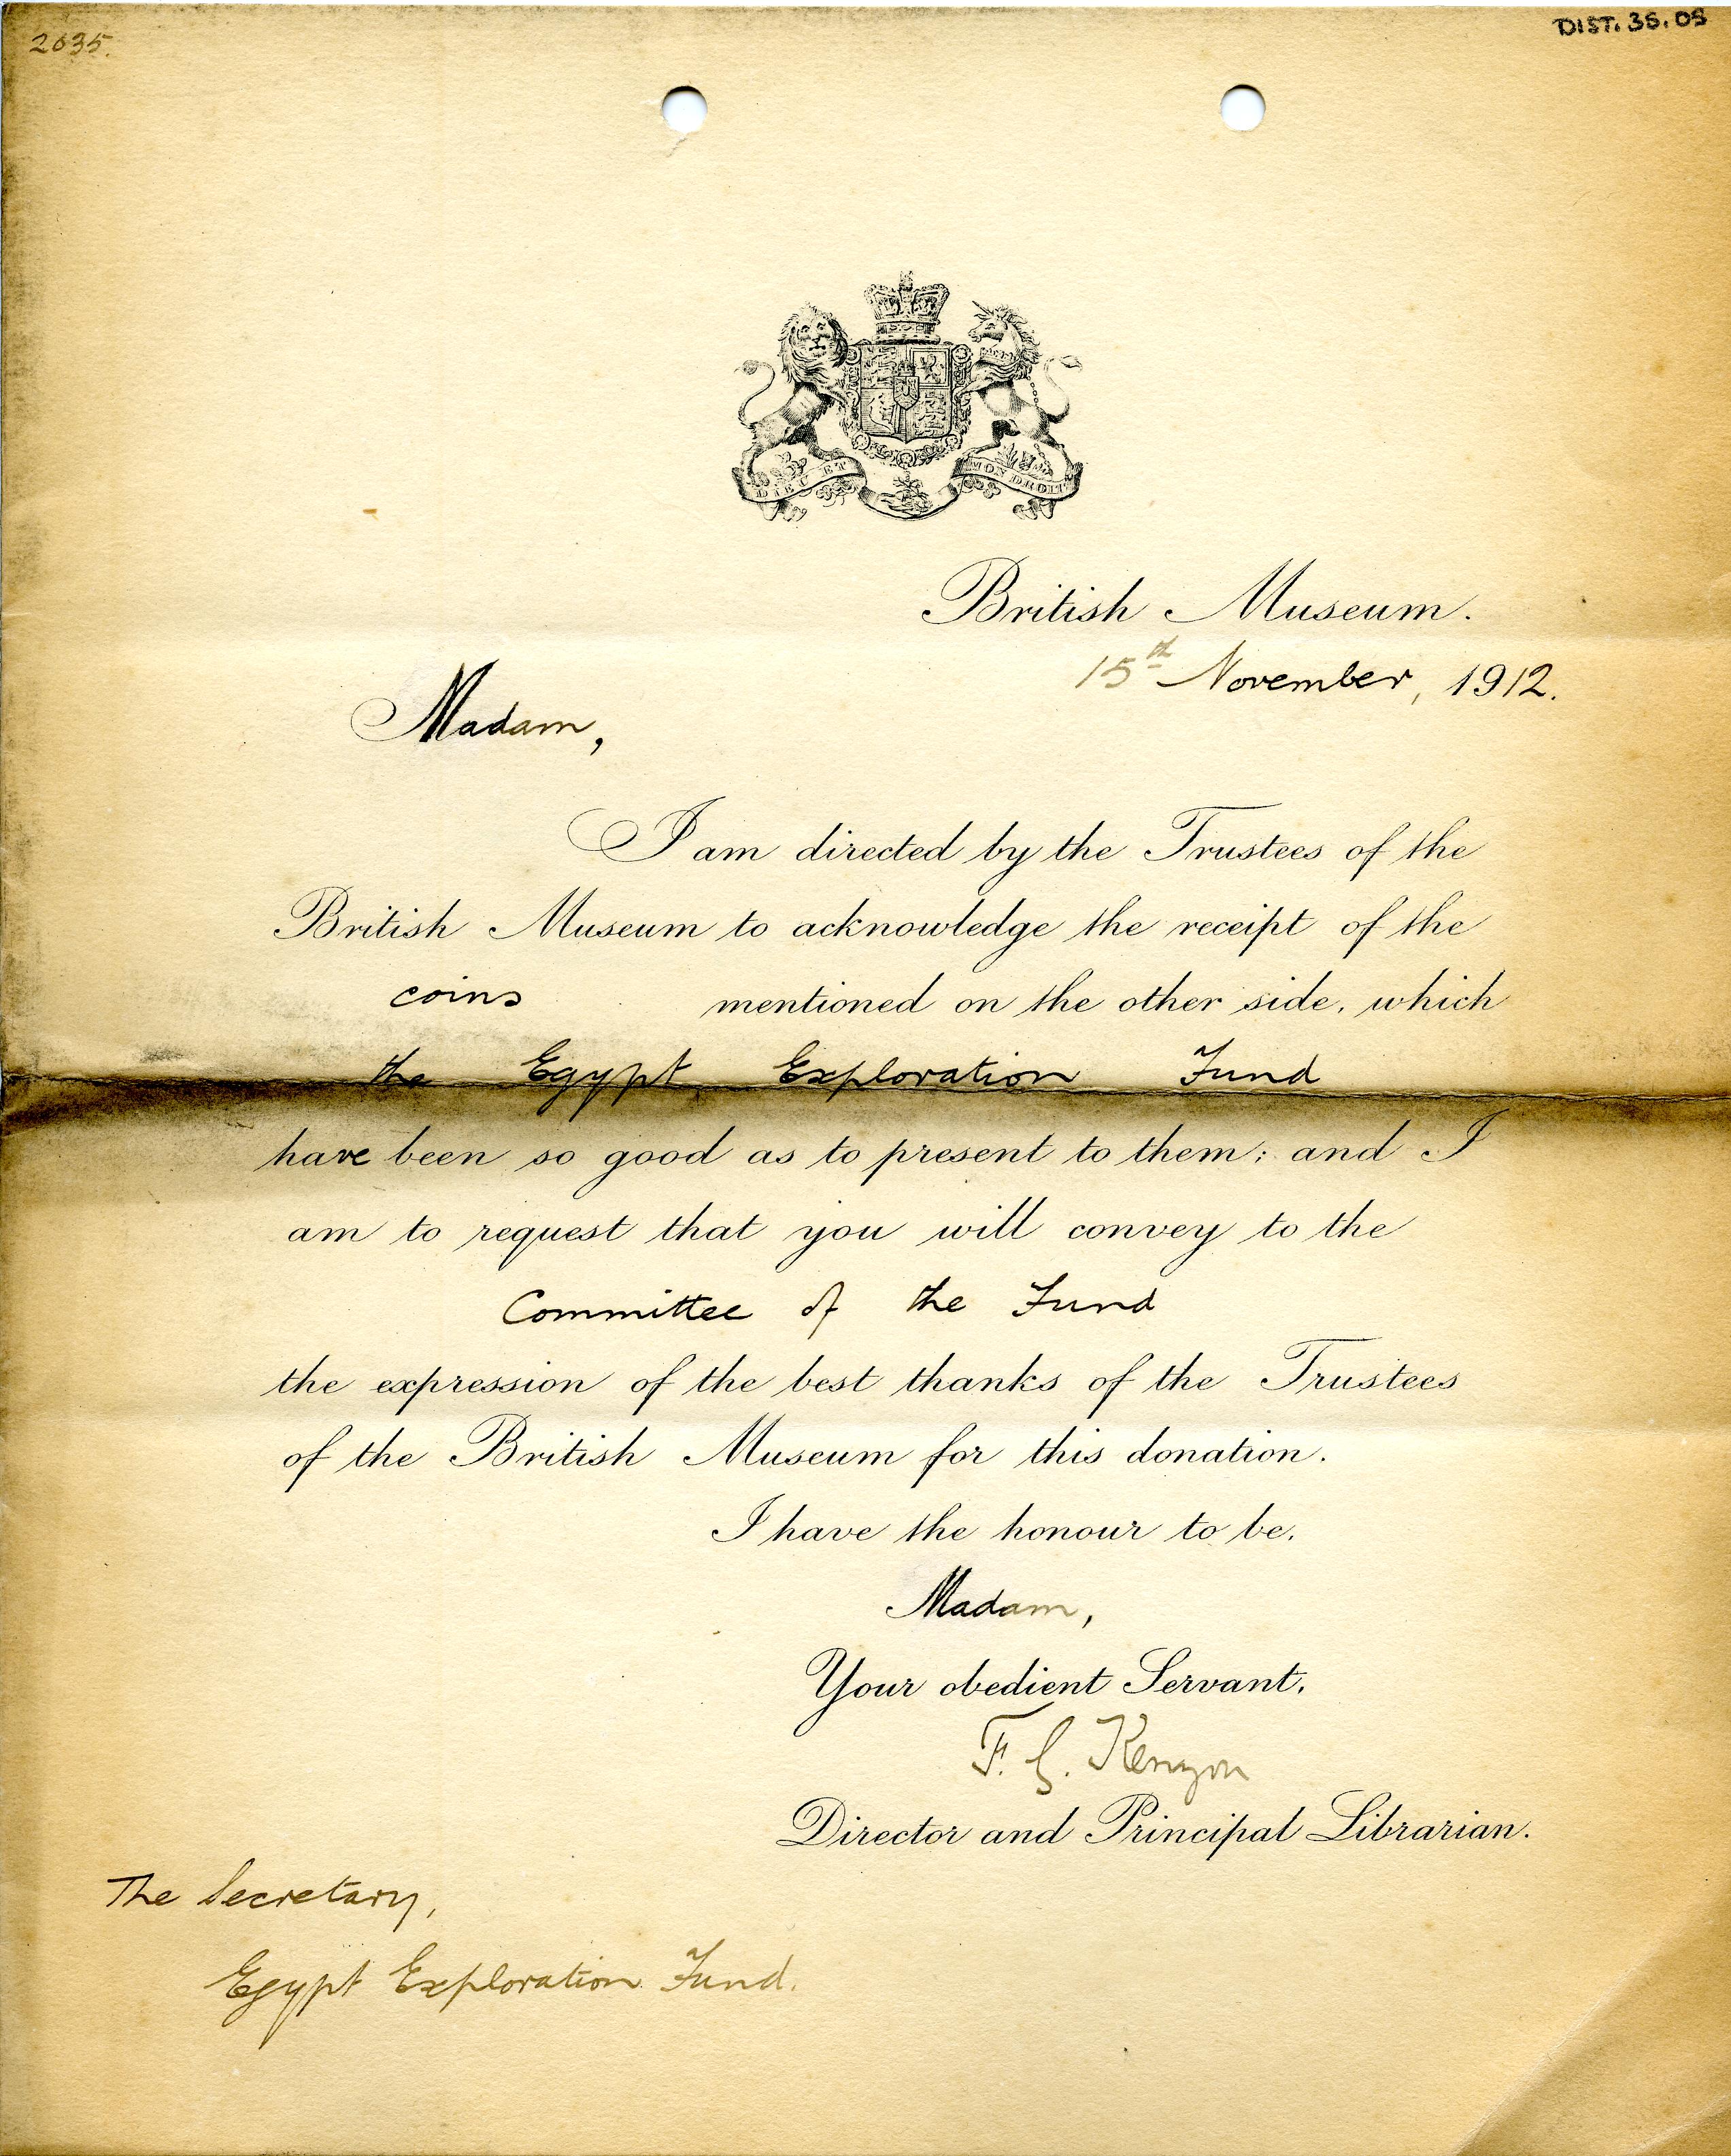 2635.
DIST. 35.05
DIEU ET MON DROIT
British Museum.
15th November, 1912.
Madam,
I am directed by the Trustees of the
British Museum to acknowledge the receipt of the
coins mentioned on the other side, which
the Egypt Exploration Fund
have been so good as to present to them; and I
am to request that you will convey to the
Committee of the Fund
the expression of the best thanks of the Trustees
of the British Museum for this donation.
I have the honour to be,
Madam,
Your obedient Servant,
F. G. Kenyon
Director and Principal Librarian.
The Secretary,
Egypt Exploration Fund.